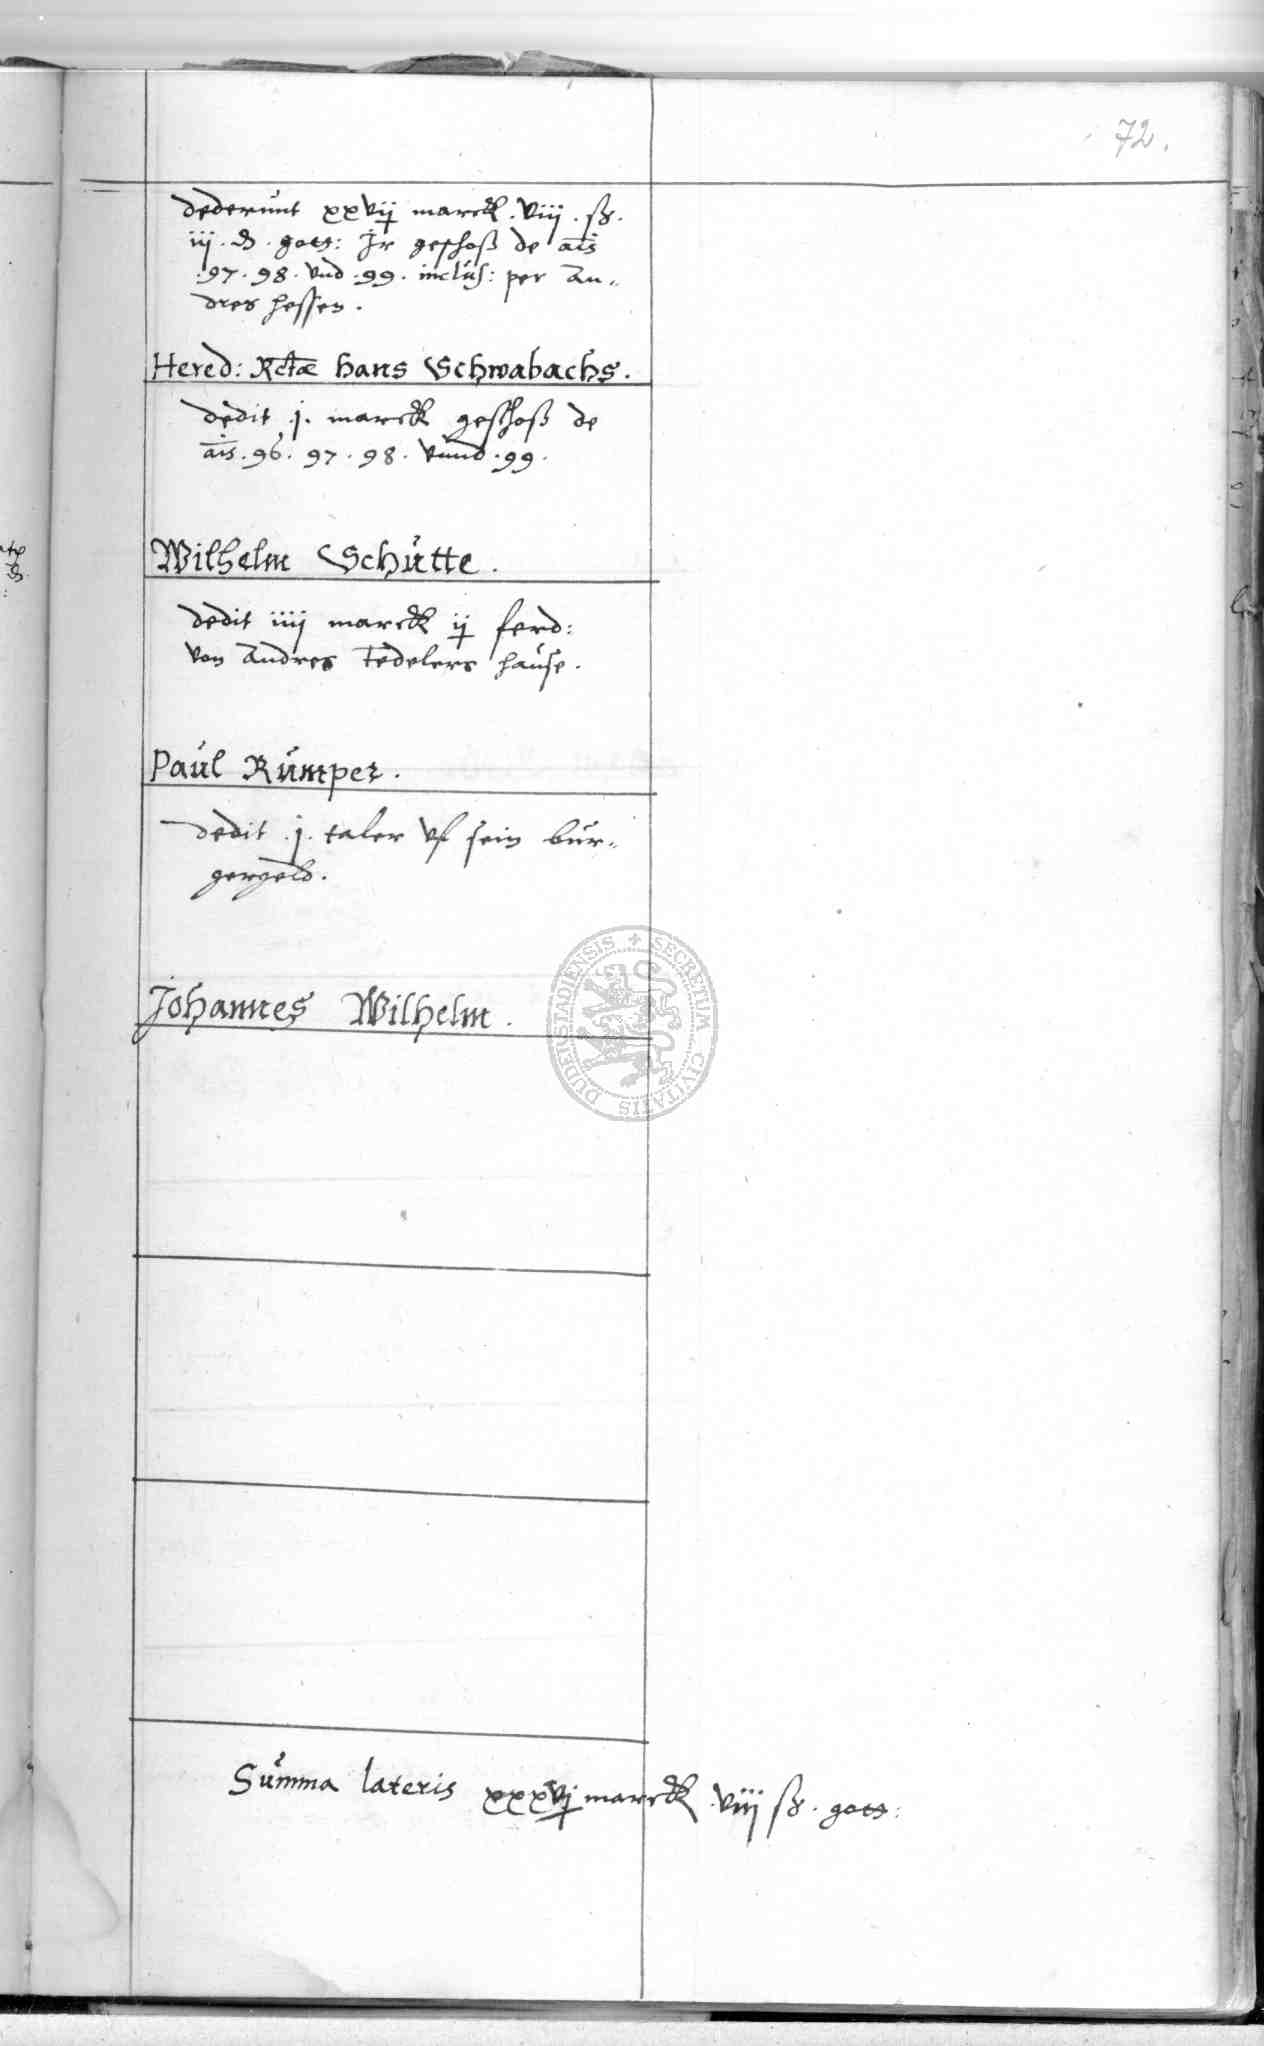 72.
dederunt xxvij marck. viij. ß.
iij. ₰. gots: Jr geschoß de ais
.97.98. vnd .99. inclus: per An„
dres hessen.
Hered: Rctæ hans Schwabachs.
dedit .j. marck geschoß de
ais.96.97.98. vnnd.99.
Wilhelm Schütte.
dedit iiij marck ij ferd:
von Andres Tedelers hause.
Paul Rümper.
dedit .j. taler vf sein bur„
gergeld.
Johannes Wilhelm.
SECRETUM CIVITATIS DUDERSTADIENSIS
Summa lateris xxxvj marck viij ß. gots: